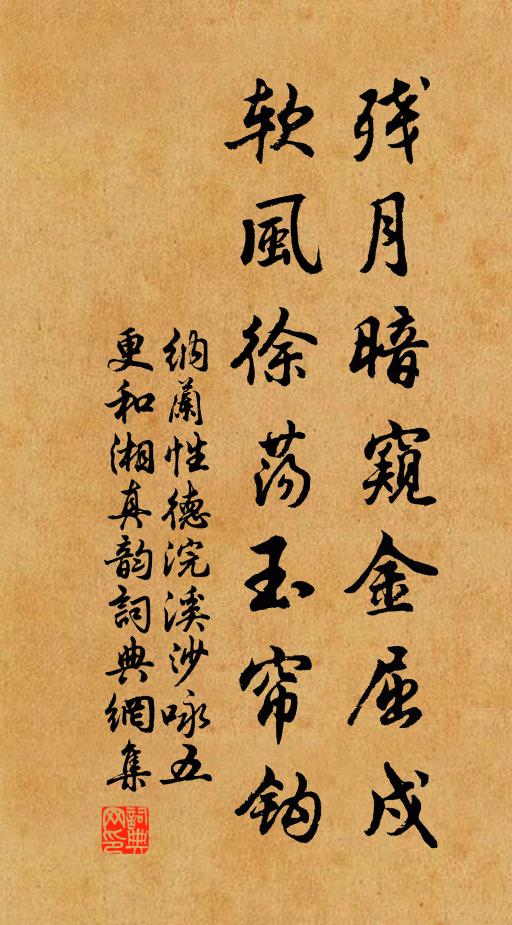 残月暗窺金屈戌
软風徐荡玉帘钩
纳蘭性德浣溪沙咏五
更和湘真韵詞典網集
詞典
网印